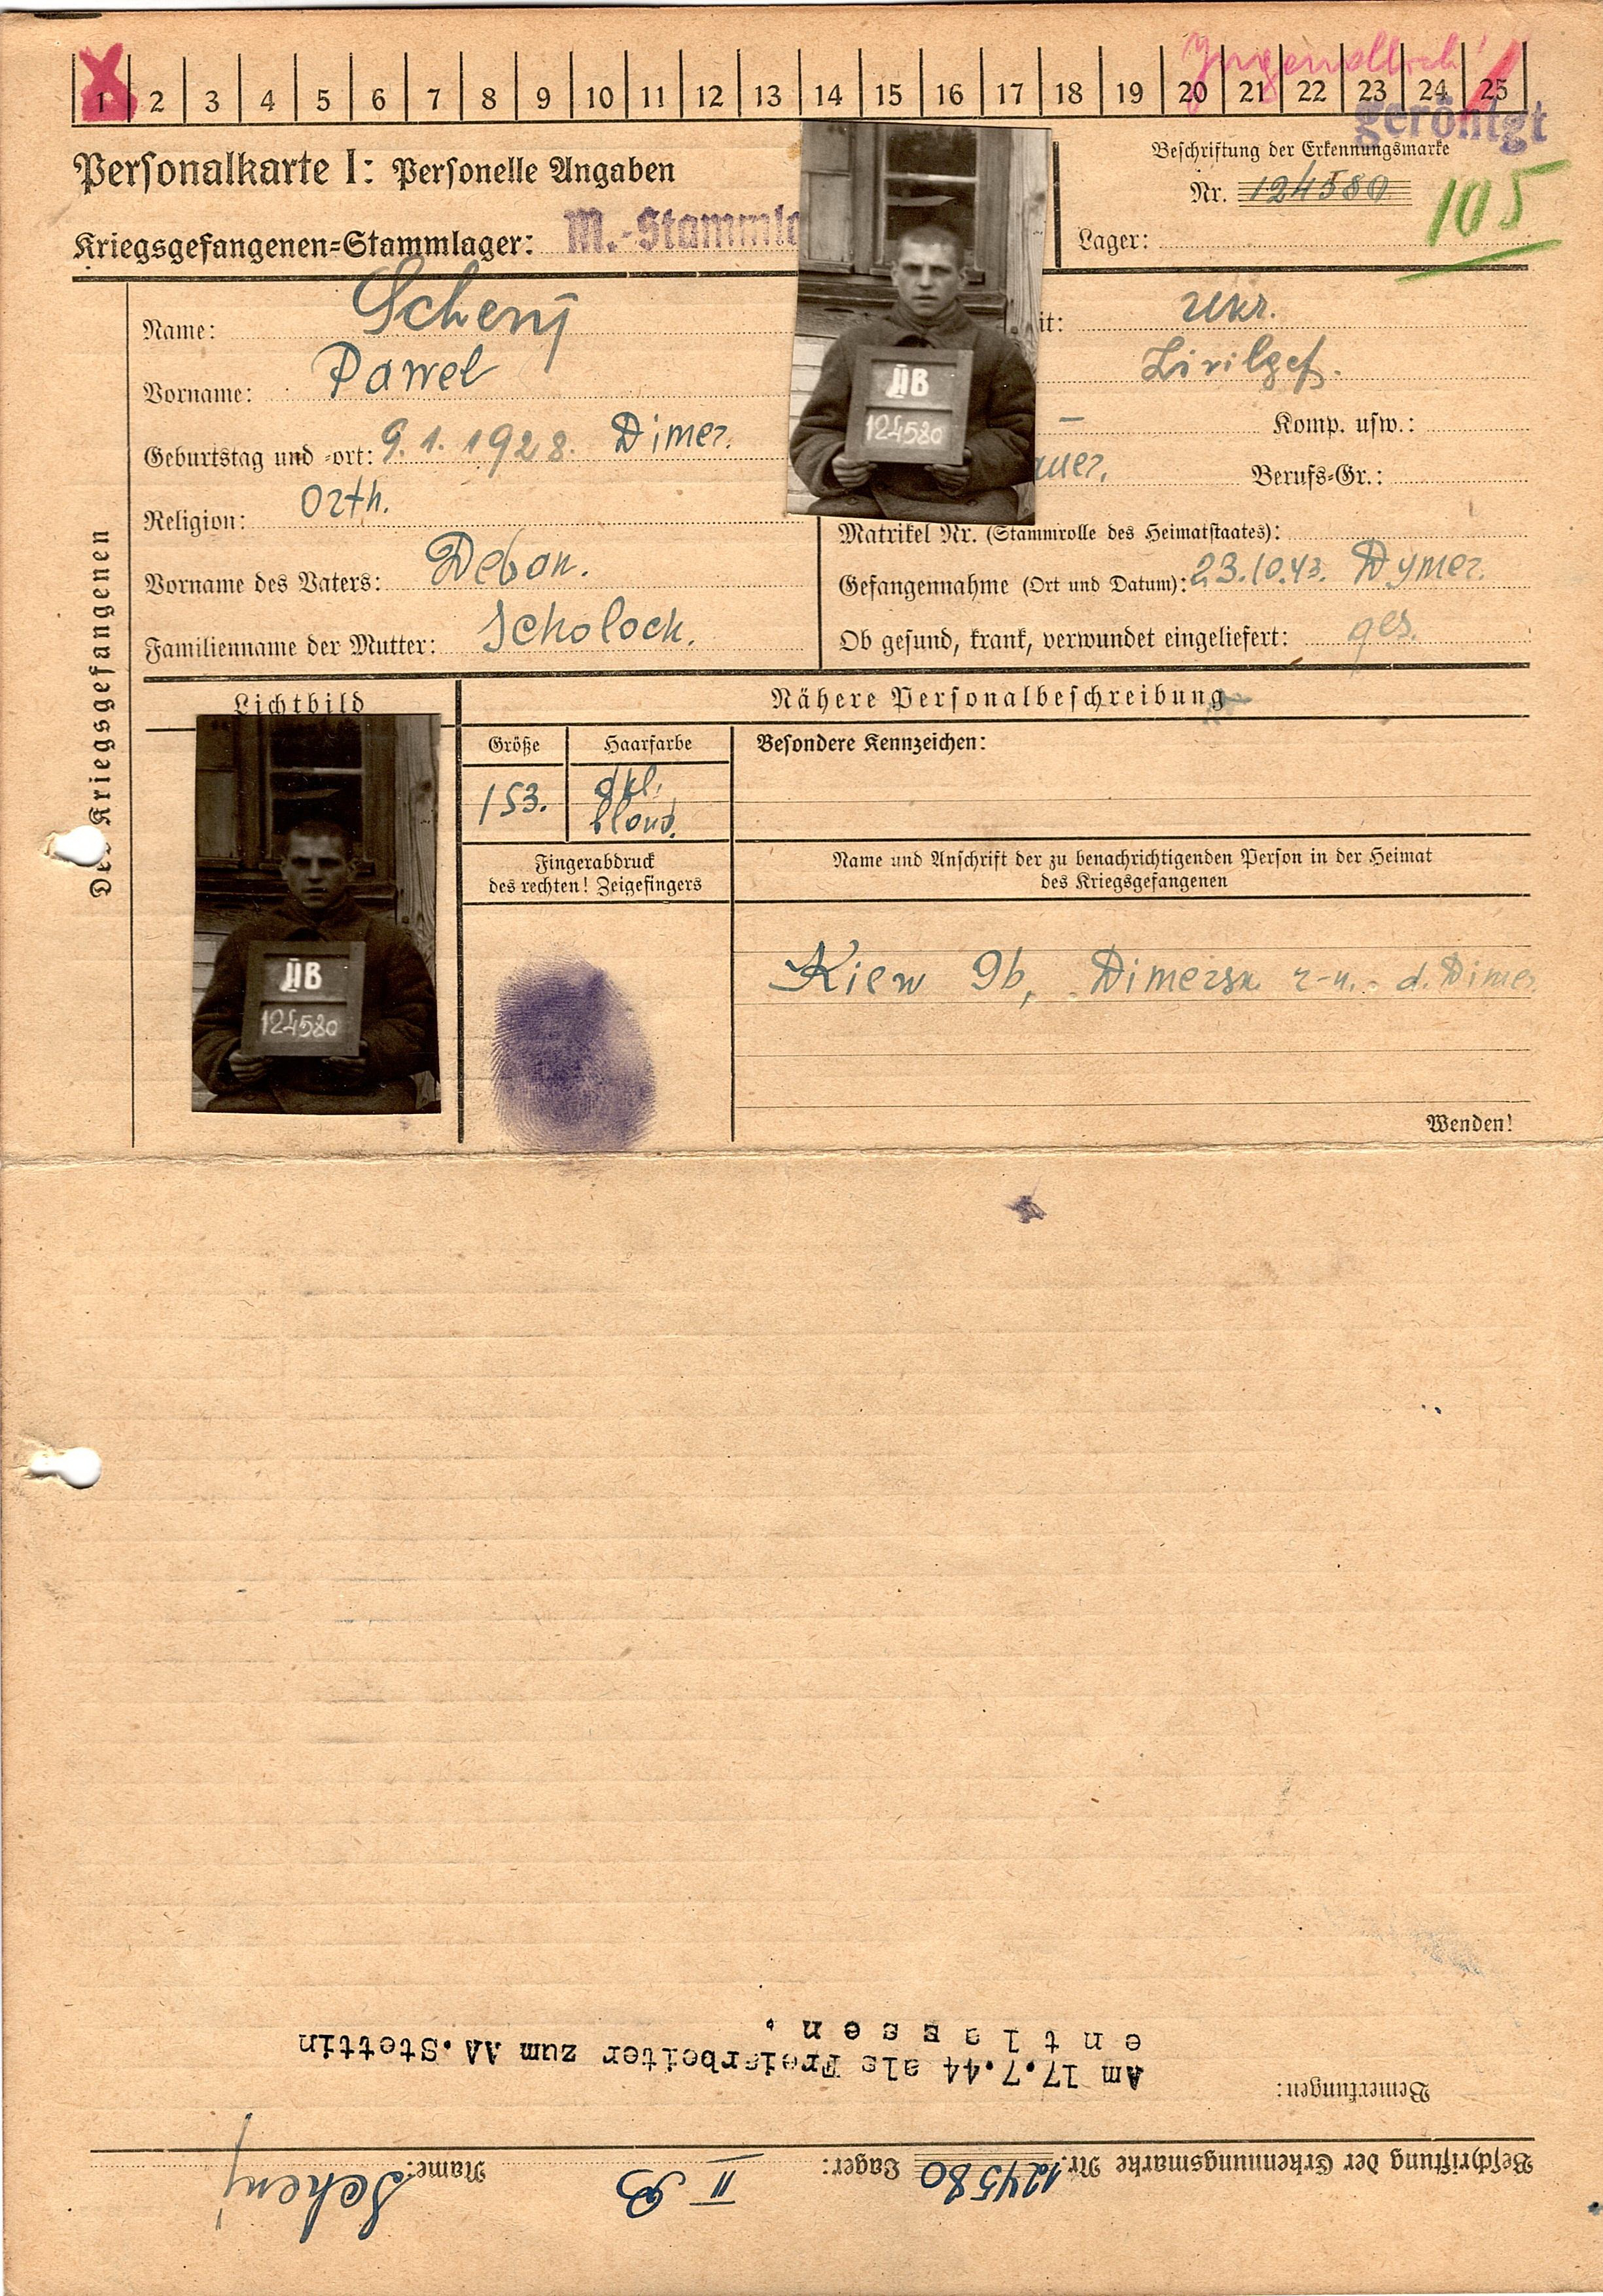 1 2 3 4 5 6 7 8 9 10 11 12 13 14 15 16 17 18 19 20 21 22 23 24 25
Jugendlich
geröntgt
Personalkarte I: Personelle Angaben
Beschriftung der Erkennungsmarke
Nr. 124580
105
Kriegsgefangenen-Stammlager: M.-Stammla
Lager:
Des Kriegsgefangenen
Name: Scheny
it: Ukr.
Vorname: Pawel
Zivilgef.
Geburtstag und -ort: 9.1.1928. Dimer.
– Komp. usw.:
auer. Berufs-Gr.:
Religion: Orth.
Matrikel Nr. (Stammrolle des Heimatstaates):
Vorname des Vaters: Debon.
Gefangennahme (Ort und Datum): 23.10.43. Dymer.
Familienname der Mutter: Scholoch.
Ob gesund, krank, verwundet eingeliefert: ges.
IIB
124580
Lichtbild
Nähere Personalbeschreibung
Größe
Haarfarbe
Besondere Kennzeichen:
153.
dkl.
blond.
Fingerabdruck
des rechten! Zeigefingers
Name und Anschrift der zu benachrichtigenden Person in der Heimat
des Kriegsgefangenen
Kiew 9b, Dimersk. r-n. d. Dimer
IIB
124580
Wenden!
Beschriftung der Erkennungsmarke Nr. 124580 Lager: II B Name: Scheny
Bemerkungen:
Am 17.7.44 als Freiarbeiter zum AA.Stettin
entlassen.